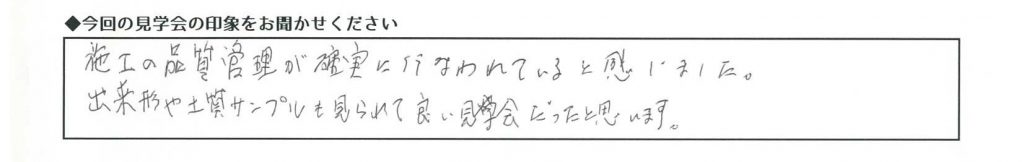 ◆今回の見学会の印象をお聞かせください
施工の品質管理が確実に行なわれていると感じました。
出来形や土質サンプルも見られて良い見学会だったと思います。